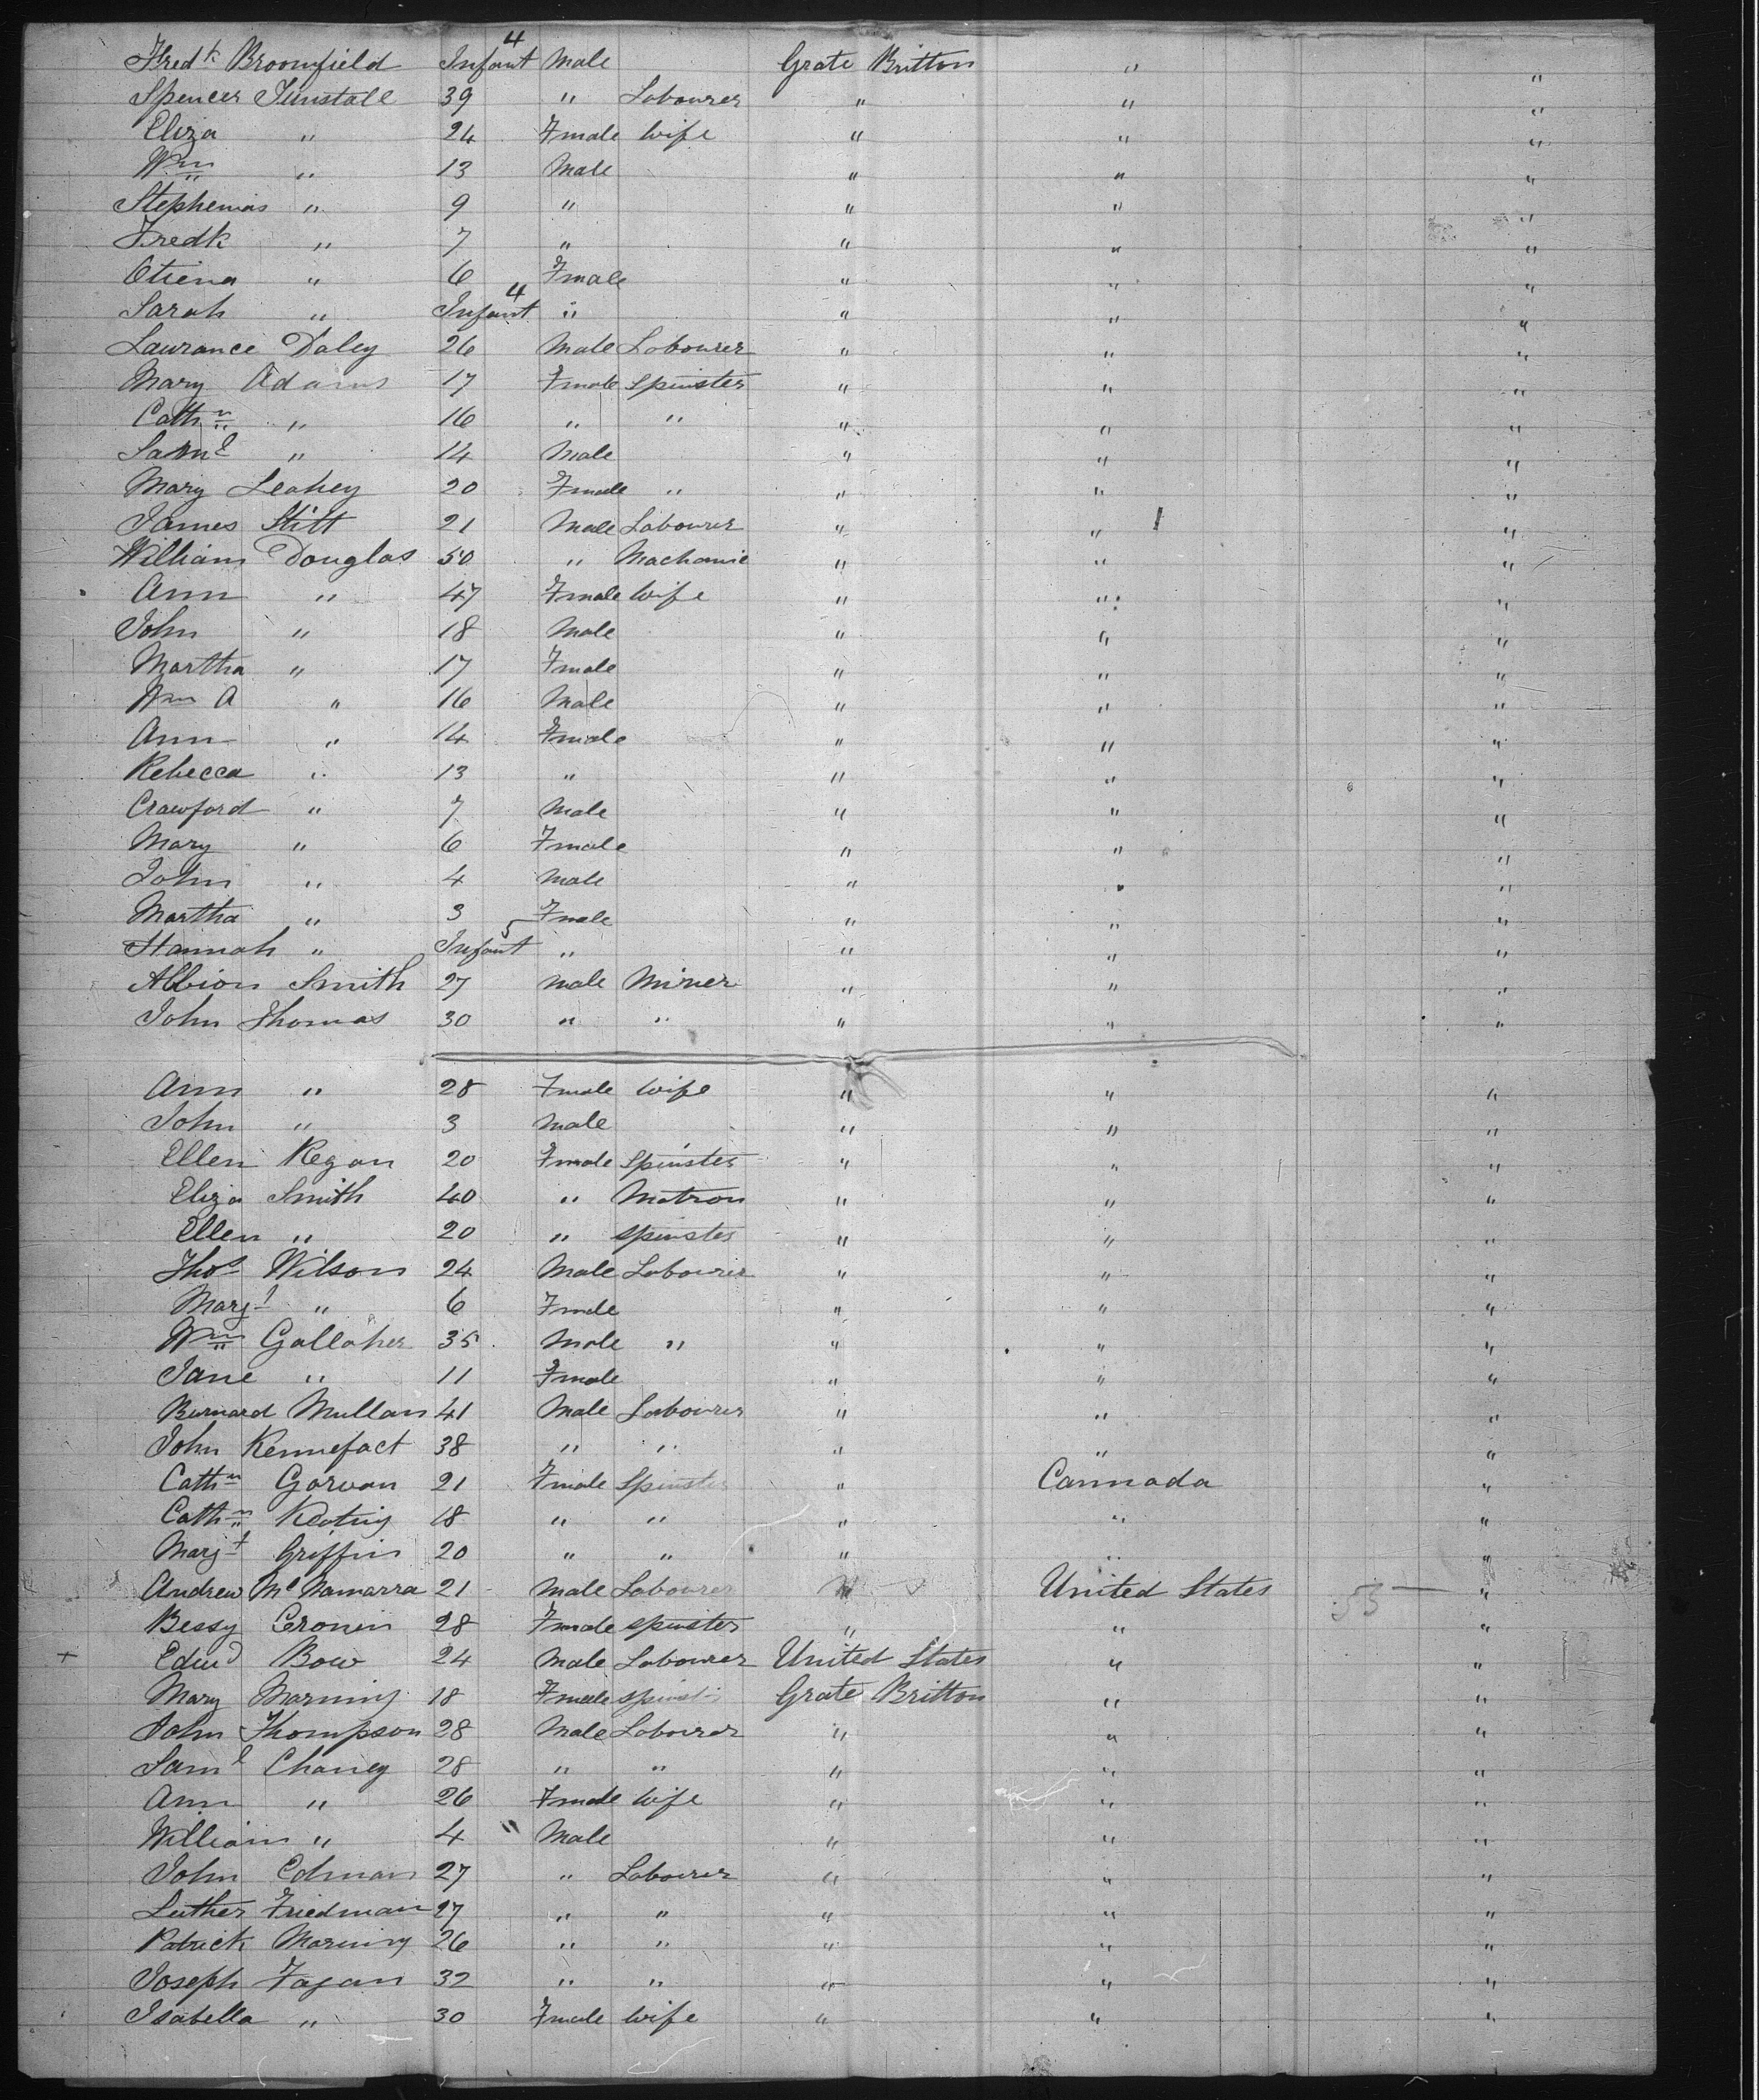 4
Fredk Broomfield Infant Male Grate Britton " "
Spencer Tunstall 39 " Labourer " " "
Eliza " 24 Fmale wife " " "
Wm " 13 Male " " "
Stephenias " 9 " " " "
Fredk " 7 " " " "
Otiena " 6 Fmale " " "
4
Sarah " Infant " " " "
Laurance Daley 26 Male Labourer " " "
Mary Adams 17 Fmale Spinster " " "
Cathn " 16 " " " " "
Saml " 14 Male " " "
Mary Leahey 20 Fmale " " " "
James Stitt 21 Male Labourer " " "
William Douglas 50 " Machanic " " "
Ann " 47 Fmale wife " " "
John " 18 Male " " "
Martha " 17 Fmale " " "
Wm A " 16 Male " " "
Ann " 14 Fmale " " "
Rebecca " 13 " " " "
Crawford " 7 Male " " "
Mary " 6 Fmale " " "
John " 4 Male " " "
Martha " 3 Fmale " " "
5
Hannah " Infant " " " "
Albion Smith 27 Male Miner " " "
John Thomas 30 " " " " "
Ann " 28 Fmale wife " " "
John " 3 Male " " "
Ellen Regan 20 Fmale Spinster " " "
Eliza Smith 40 " Matron " " "
Ellen " 20 " Spinster " " "
Thos Wilson 24 Male Labourer " " "
Margt " 6 Fmale " " "
Wm Gallaher 35 Male " " " "
Jane " 11 Fmale " " "
Burnard Mullan 41 Male Labourer " " "
John Kennefact 38 " " " " "
Cathn Garvan 21 Fmale Spinster " Cannada "
Cathn Keating 18 " " " " "
Margt Griffin 20 " " " " "
Andrew McNamarra 21 Male Labourer " United States 53 "
Bessy Cronin 28 Fmale Spinster " " "
+ Edwd Bow 24 Male Labourer United States " "
Mary Marning 18 Fmale Spinster Grate Britton " "
John Thompson 28 Male Labourer " " "
Saml Chaney 28 " " " " "
Ann " 26 Fmale wife " " "
William " 4 " Male " " "
John Edman 27 " Labourer " " "
Luther Friedman 27 " " " " "
Patrick Marning 26 " " " " "
Joseph Fagan 32 " " " " "
Isabella " 30 Fmale wife " " "